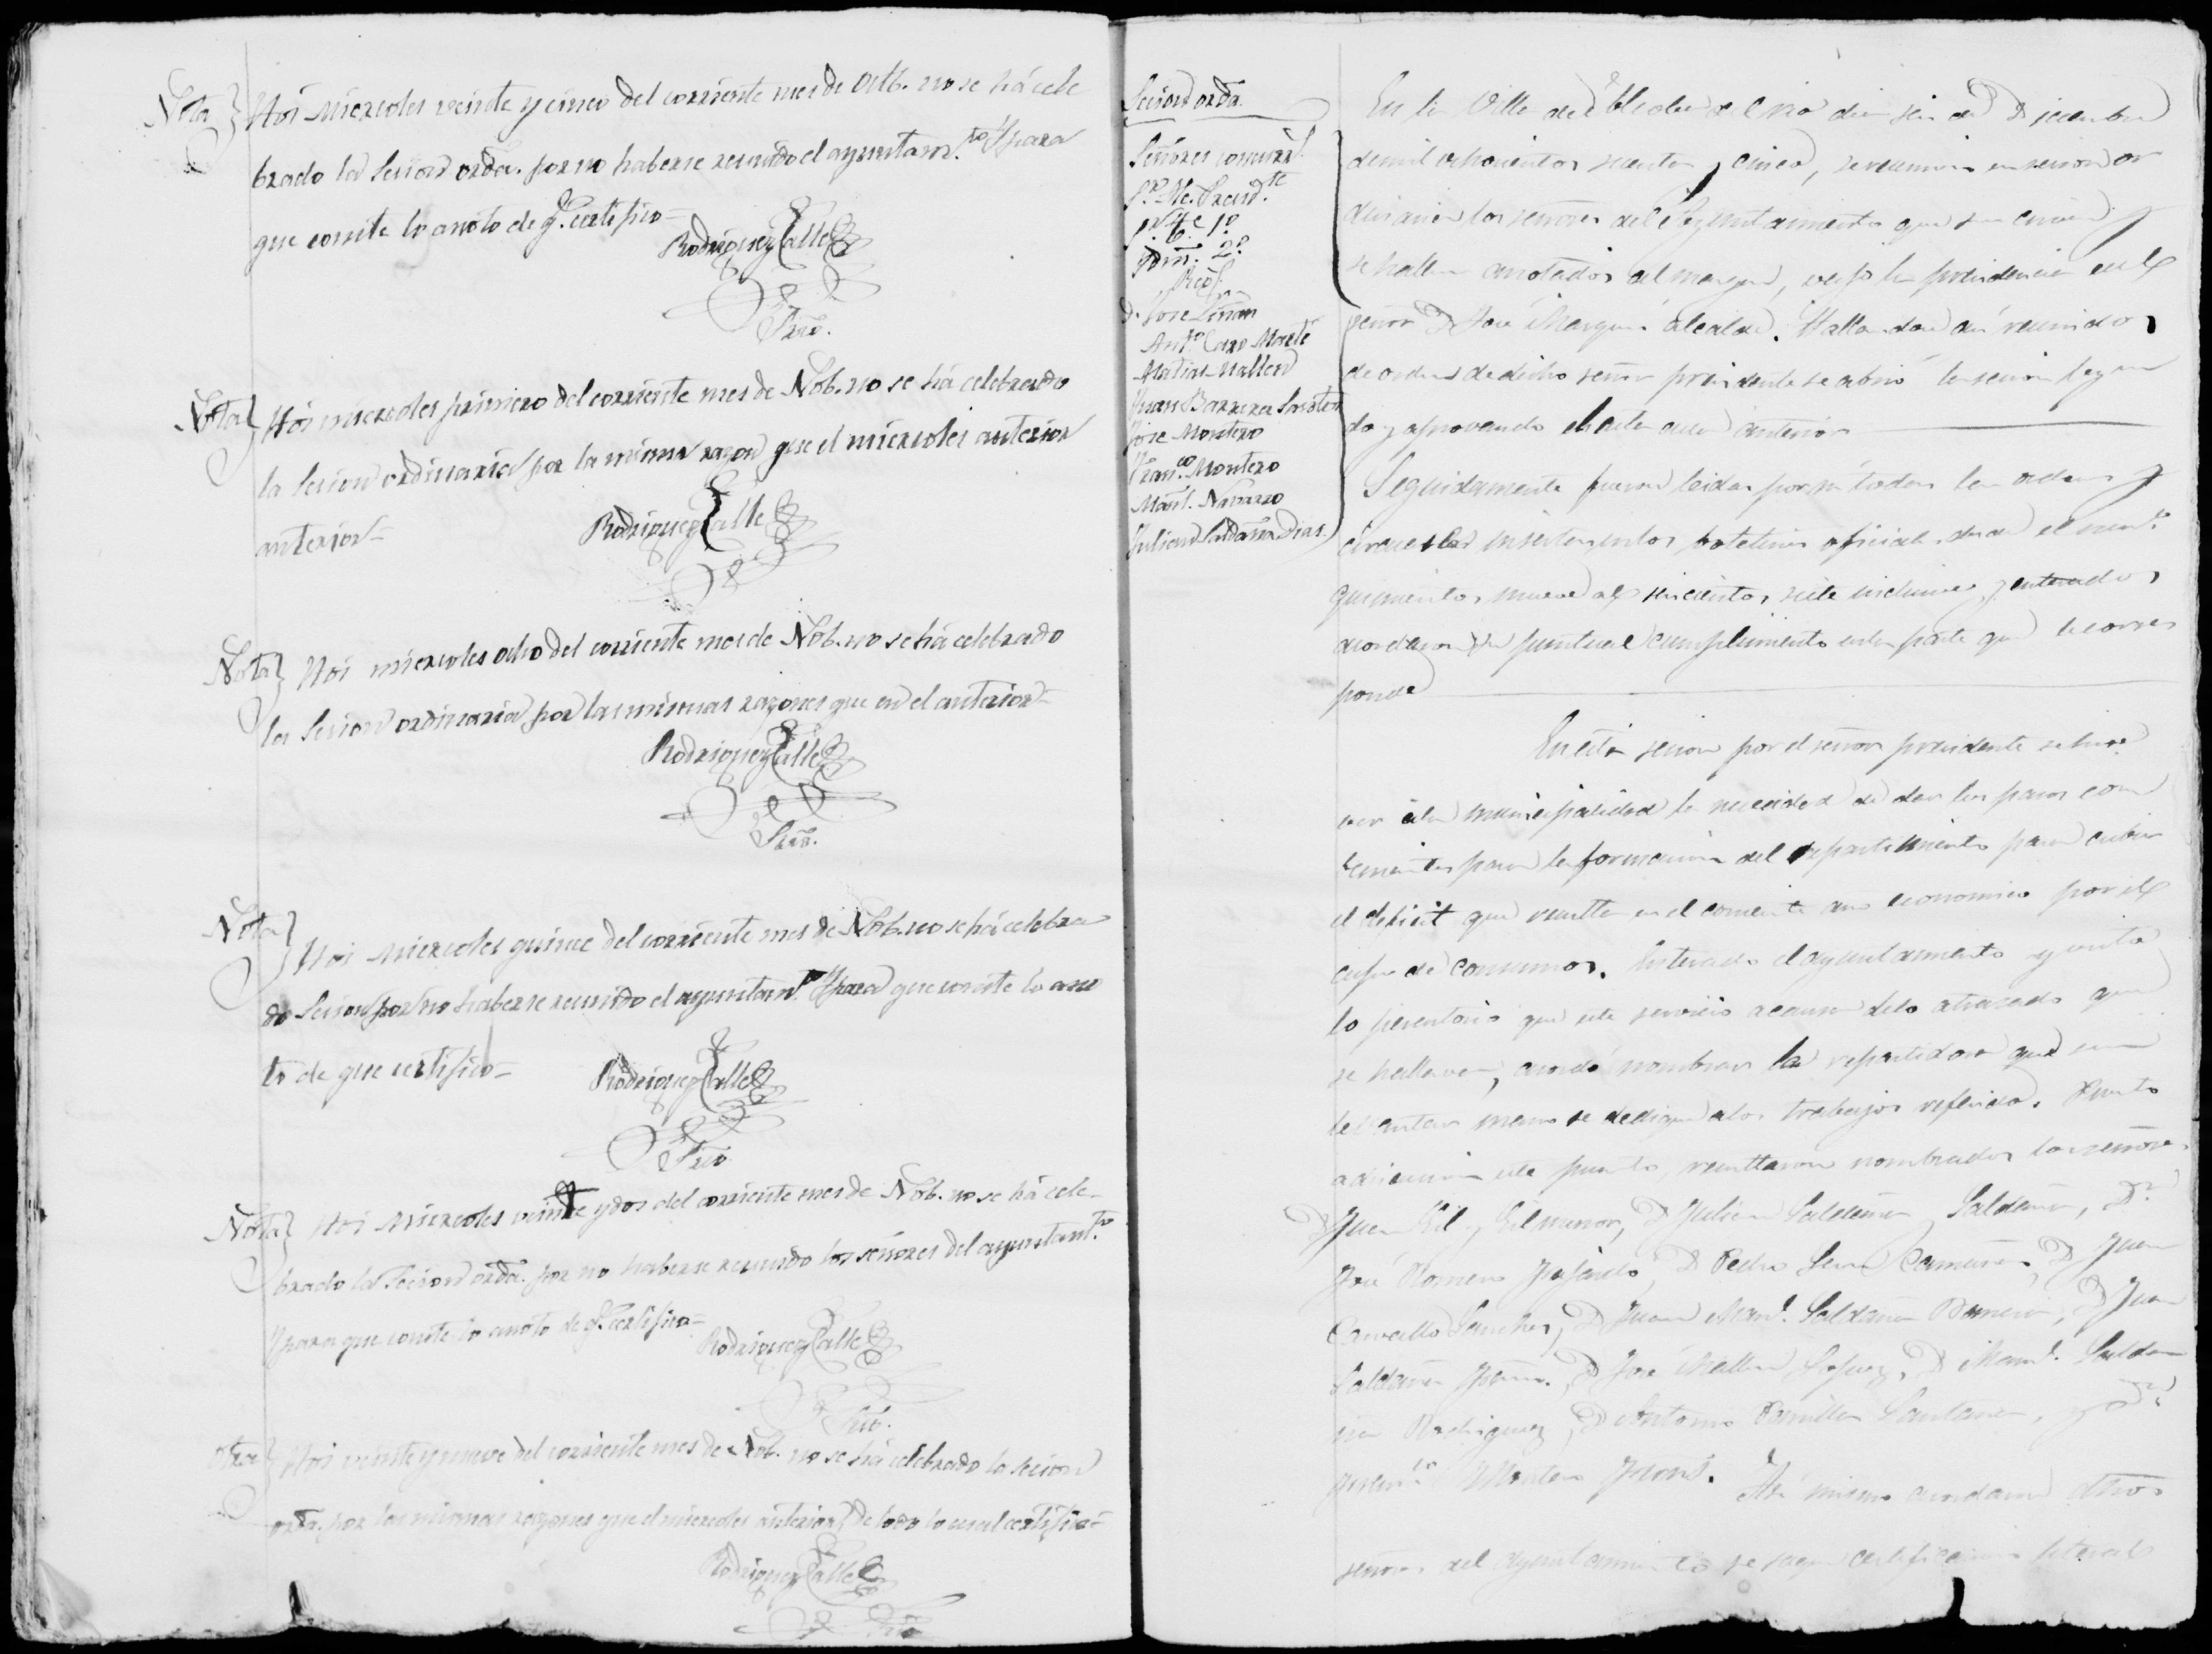 Nota Hoi Miercoles veinte y cinco del corriente mes de Octb. no se há cele
brado la Sesion orda. por no haberse reunido el ayuntam.to Y para
que conste lo anoto de q. certifico=
Rodriguez Calle
Srio.
Nota Hoi miercoles primero del corriente mes de Nob. no se há celebrado
la Sesion ordinaria por la misma razon que el miercoles anterior
anterior=
Rodriguez Calle
Nota Hoi miercoles ocho del corriente mes de Nob. no se há celebrado
la Sesion ordinaria por las mismas razones que en el anterior=
Rodriguez Calle
Srio.
Nota Hoi Miercoles quince del corriente mes de Nob. no se há celebra
do Sesion por no haberse reunido el ayuntam.to Y para que conste lo ano
to de que certifico=
Rodriguez Calle
Srio
Nota Hoi Miercoles veinte y dos del corriente mes de Nob. no se há cele-
brado la Sesion orda. por no haberse reunido los señores del ayuntant.to
Y para que conste lo anoto de q. certifico=
Rodriguez Calle
Srio.
Otra Hoi veinte y nueve del corriente mes de Nob. no se há celebrado la sesion
orda. por las mismas razones que el miercoles anterior, de todo lo cual certifico=
Rodriguez Calle
Srio
Sesion orda.
Señores concurr.
Sr. Alc. Presid.te
1º
Idm. 2º
Regs.
D. Jose Liñan
Ant.o Caro Marte
Matias Mallen
Juan Barrera
Jose Montero
Fran.co Montero
Manl. Navarro
Julian Saldaña Dias.
En la Villa de del rio dia seis de Diciembre
de mil ochocientos sesenta y cinco, se reunieron en sesion or
dinaria los señores del Ayuntamiento que
se hallan anotados al margen, bajo la presidencia del
señor D Jose Marquez alcalde. Hallandose asi reunidos
de orden de dicho señor presidente se abrió la sesion leyen
do y aprovando el acta anterior
Seguidamente fueron leidas por mi todas las ordenes y
circulares insertas en los boletines oficiales desde el num.o
quinientos nueve al seiscientos siete inclusive, y enterados
acordaron su puntual cumplimiento en la parte que le corres
ponde
En esta sesion por el señor presidente se hizo
ver á la municipalidad la necesidad de dar los pasos con
benientes para la formacion del repartimiento para cubrir
el deficit que resulta en el corriente año economico por el
cupo de consumos. Enterado el ayuntamiento y vista
lo perentorio que este servicio a causa de lo atrasado que
se hallava, acordó nombrar los repartidores que sin
lebantar mano se dedique a los trabajos referidos. Puesto
a discusion este punto, resultaron nombrados los señores
D Juan Gil y Gil menor, D Julian Saldaña y Saldaña, Dn
José Romero Fajardo, D Pedro D Juan
Carvallo Sanchez, D Juan Manl. Saldaña Romero, D Juan
Saldaña D Jose Mallen Lopez, D Manl. Salda
ña Rodriguez, D Antonio Santana, y Dn
Montero Asi mismo acordaron dhos
señores del ayuntamiento se saque certificacion literal